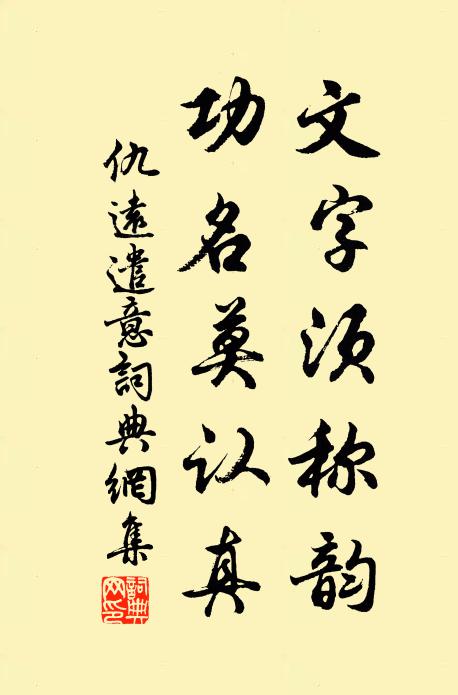 文字须称韵
功名莫认真
仇遠遣意詞典網集
詞典网印